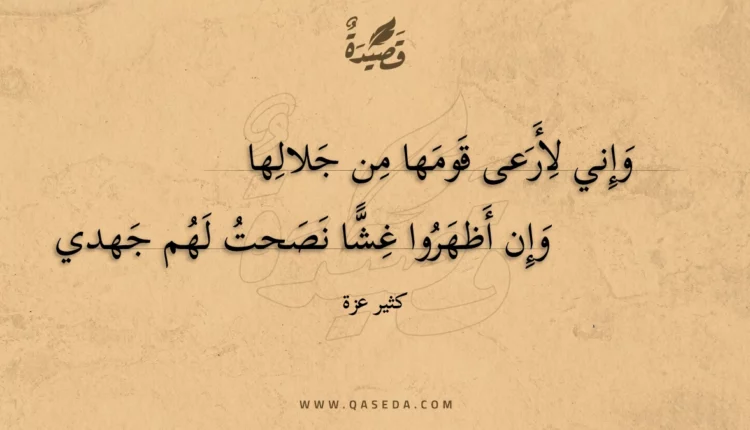 قَصِيدَةٌ
وَإِني لِأَرَعى قَومَها مِن جَلالِها
وَإِن أَظهَرُوا غِشًّا نَصَحتُ لَهُم جَهدي
كثير عزة
WWW.QASEDA.COM